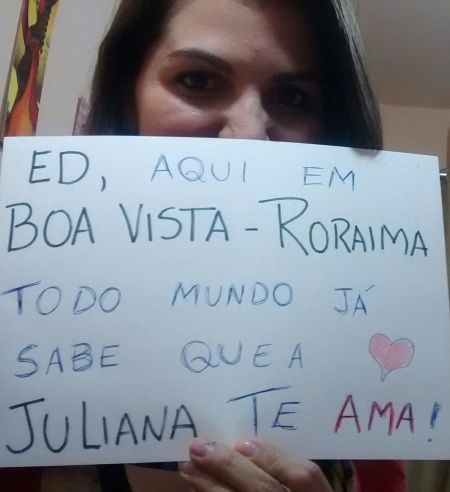 ED, AQUI EM
BOA VISTA - RORAIMA
TODO MUNDO JÁ
SABE QUE A
JULIANA TE AMA!